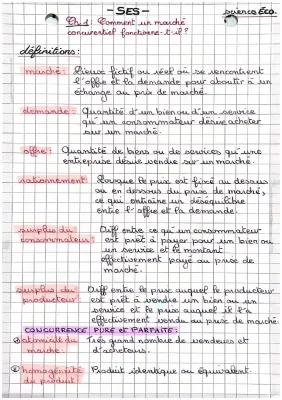 - SES -
Science Éco.
Ch 1 : Comment un marché
concurrentiel fonctionne-t-il ?
définitions :
marché : Lieux fictif ou réel où se rencontrent
l'offre et la demande pour aboutir à un
échange au prix de marché.
demande : Quantité d'un bien ou d'un service
qu'un consommateur désire acheter
sur un marché.
offre : Quantité de biens ou de services qu'une
entreprise désire vendre sur un marché.
rationnement : Lorsque le prix est fixé au dessus
ou en dessous du prix de marché,
ce qui entraîne un déséquilibre
entre l'offre et la demande.
surplus du consommateur : Diff entre ce qu'un consommateur
est prêt à payer pour un bien ou
un service et le montant
effectivement payé au prix de
marché.
surplus du producteur : Diff entre le prix auquel le producteur
est prêt à vendre un bien ou un
service et le prix auquel il l'a
effectivement vendu au prix de marché.
CONCURRENCE PURE et PARFAITE :
① atomicité du marché : Très grand nombre de vendeurs et
d'acheteurs.
② homogénéité du produit : Produit identique ou équivalent.